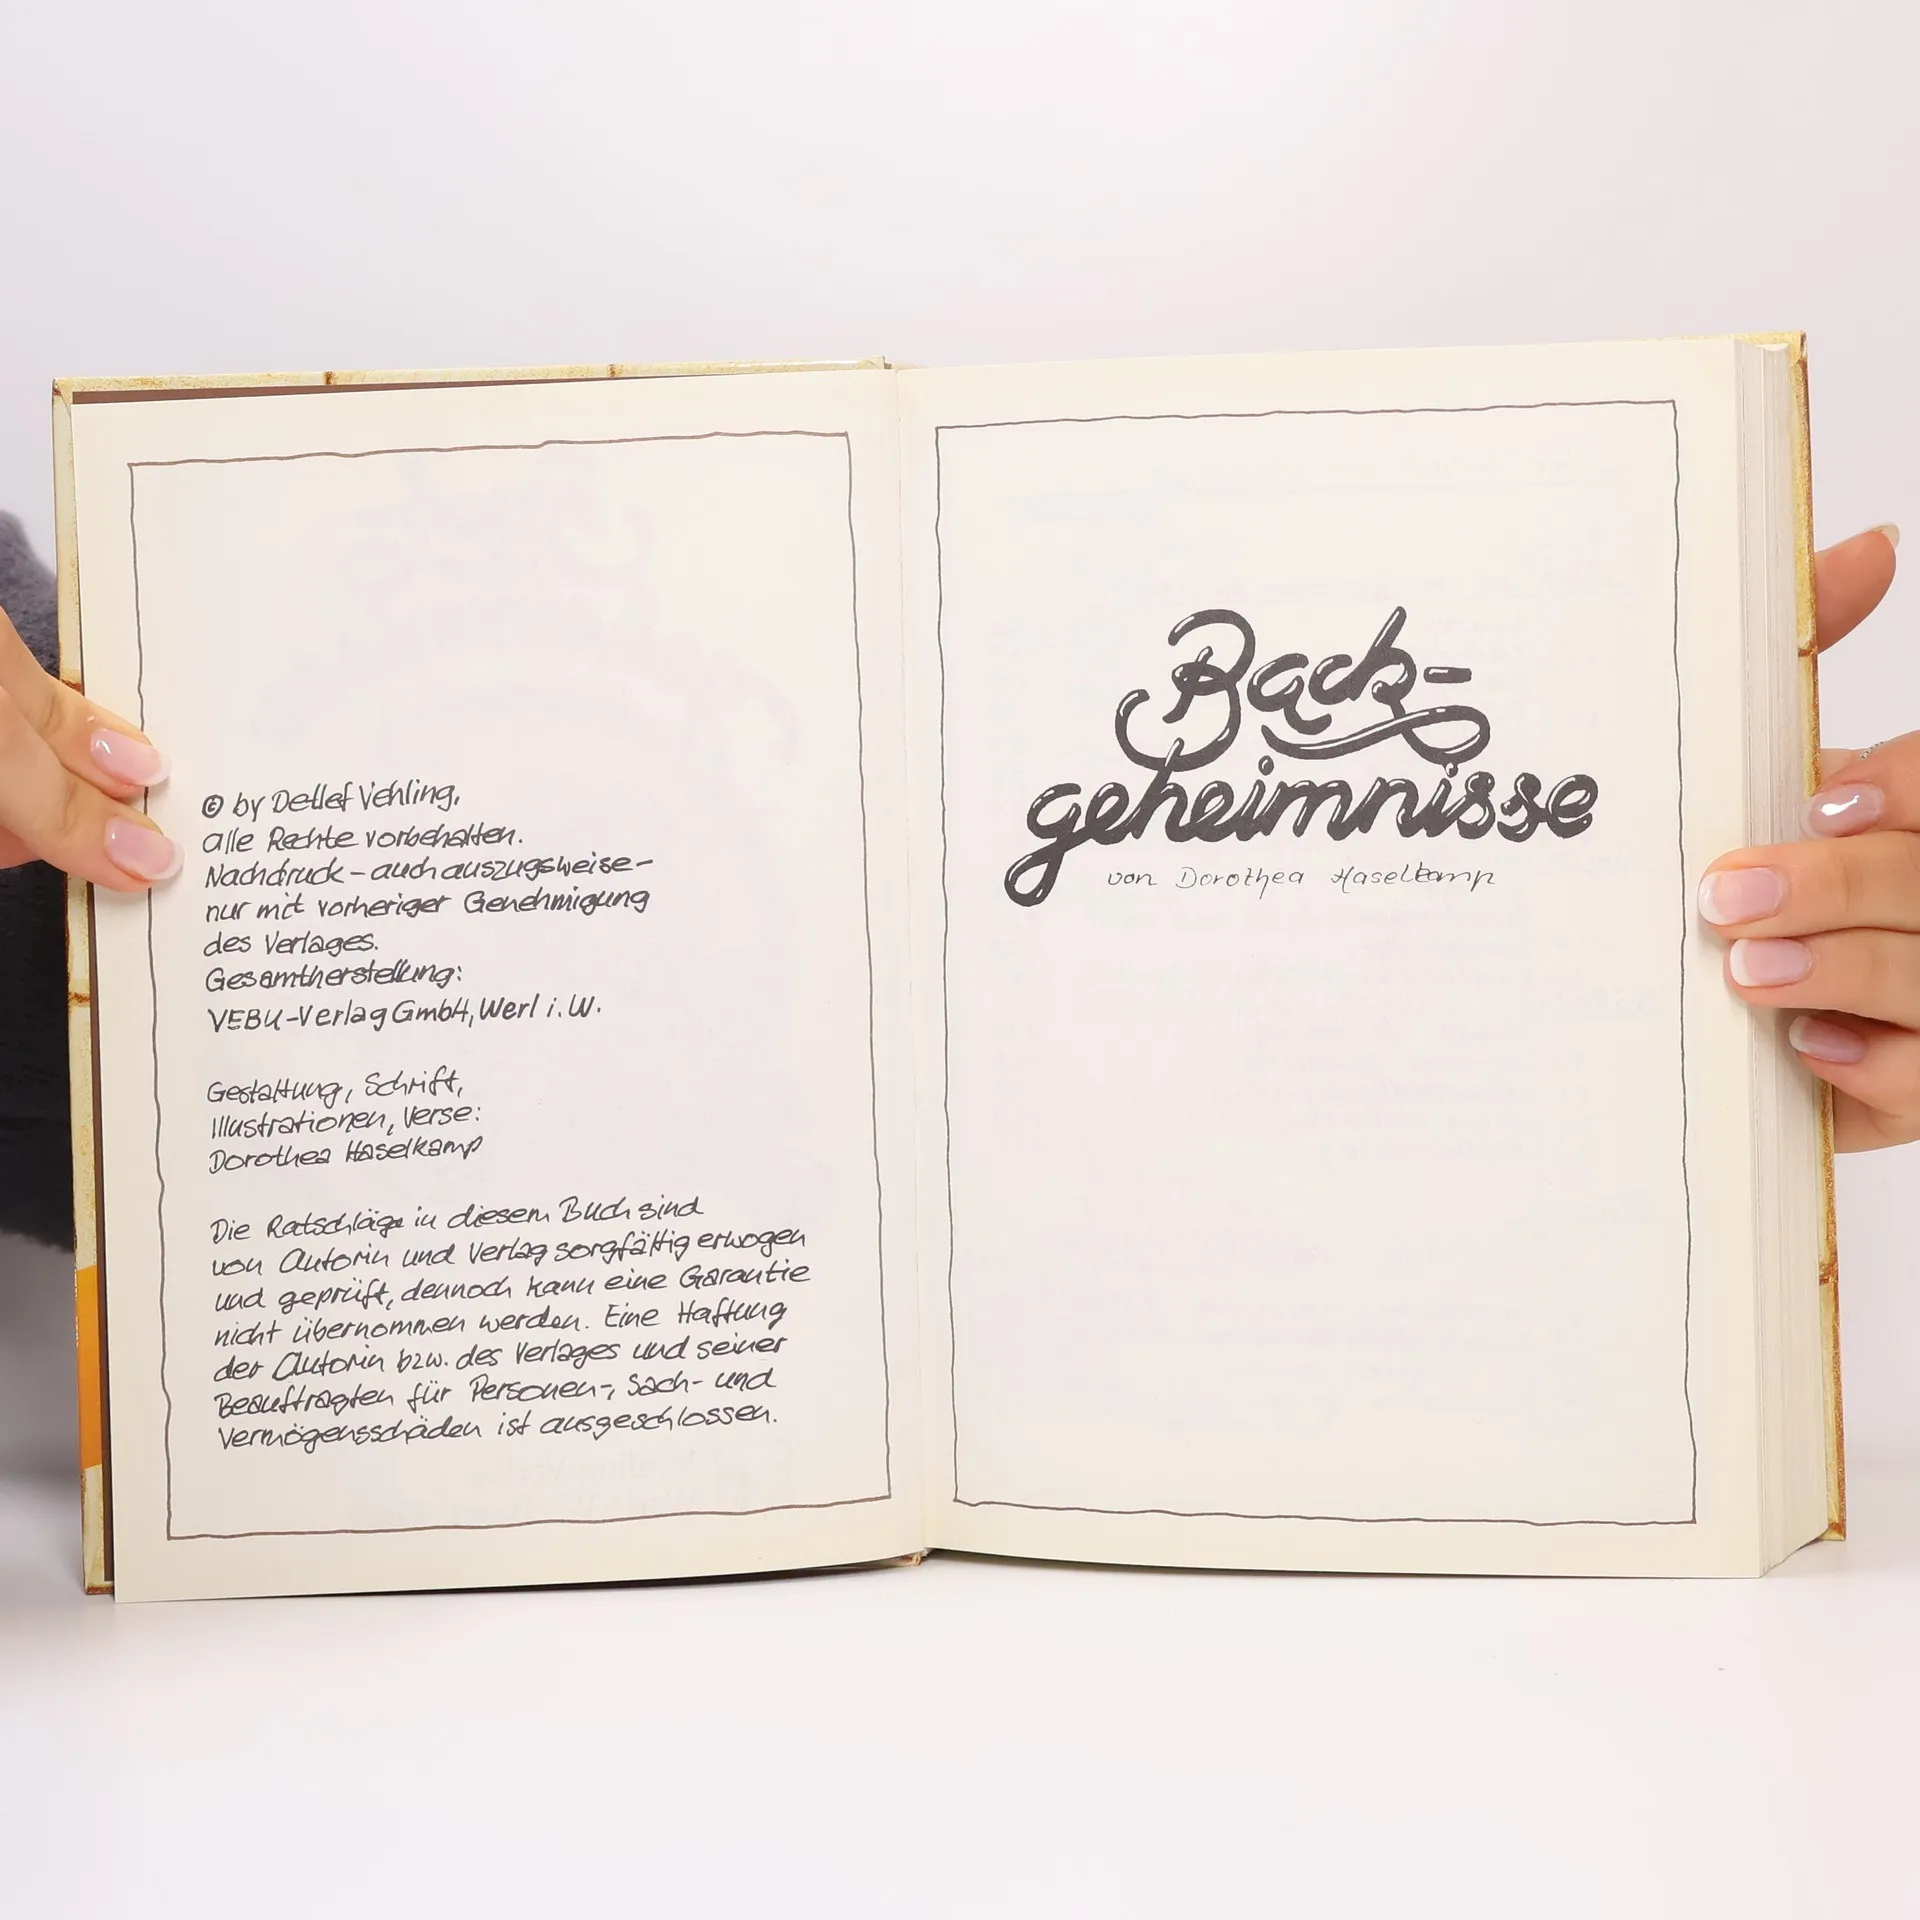 © by Detlef Vehling,
alle Rechte vorbehalten.
Nachdruck – auch auszugsweise –
nur mit vorheriger Genehmigung
des Verlages.
Gesamtherstellung:
VEBU-Verlag GmbH, Werl i. W.
Gestaltung, Schrift,
Illustrationen, Verse:
Dorothea Haselkamp
Die Ratschläge in diesem Buch sind
von Autorin und Verlag sorgfältig erwogen
und geprüft, dennoch kann eine Garantie
nicht übernommen werden. Eine Haftung
der Autorin bzw. des Verlages und seiner
Beauftragten für Personen-, Sach- und
Vermögensschäden ist ausgeschlossen.
Back-
geheimnisse
von Dorothea Haselkamp